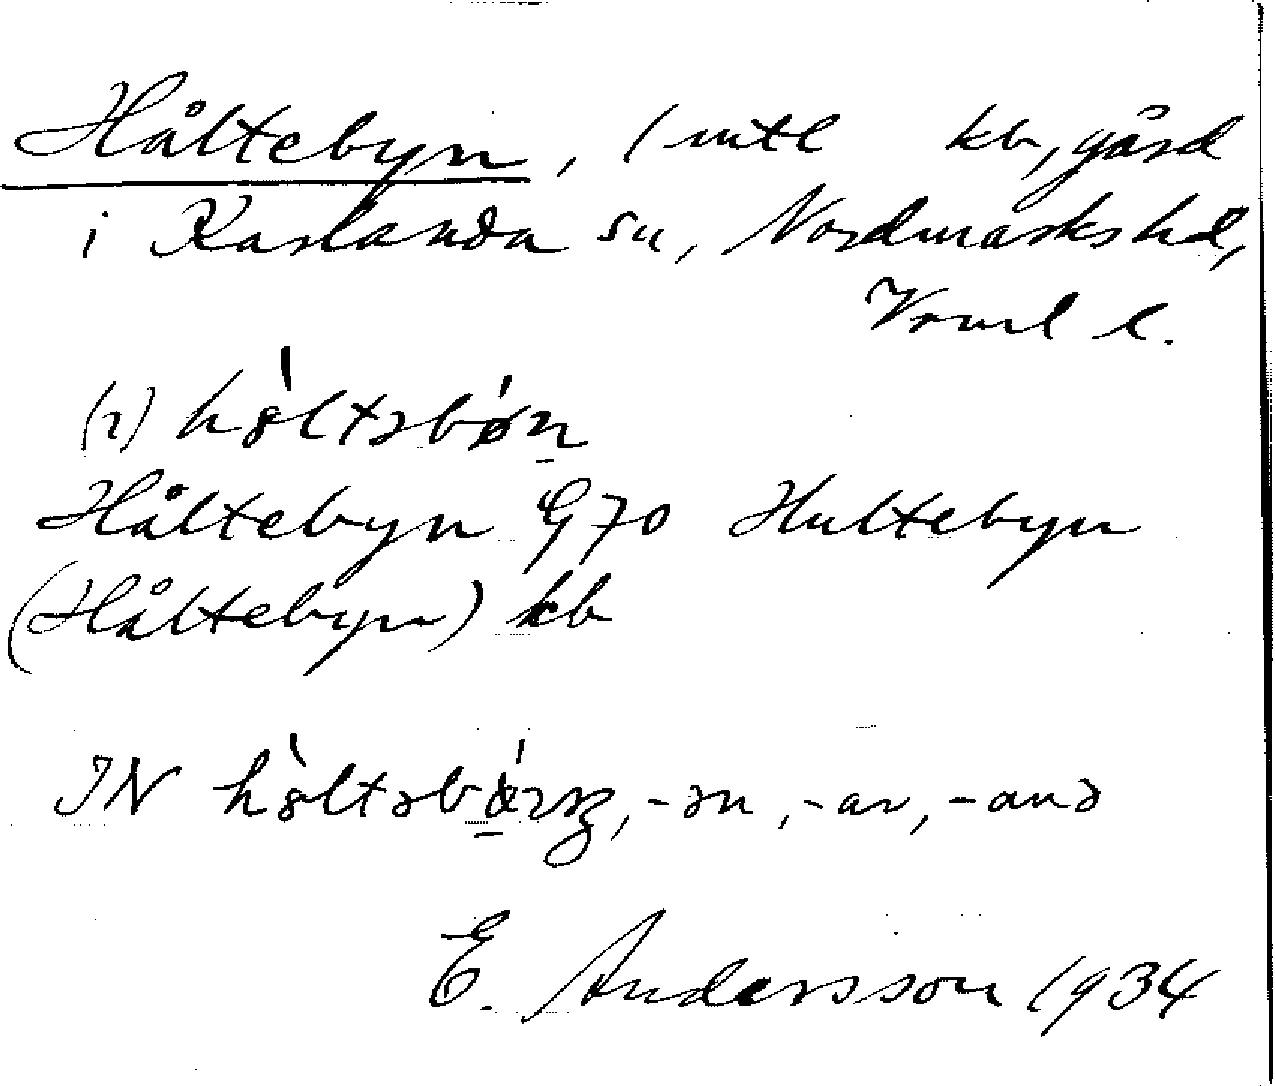 Håltebyn, 1 mtl kb, gård
i Karlanda sn, Nordmarks hd,
Vrml l.
(2) hòltəbøn
Håltebyn GJ0 Hultebyn
(Håltebyn) kb
IN hòltəb -ən, -ar, -anə
E. Andersson 1934